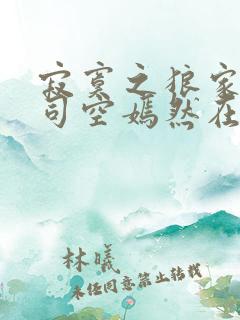 寂寞之狼家
司空嫣然在
林曦
未经同意禁止转载